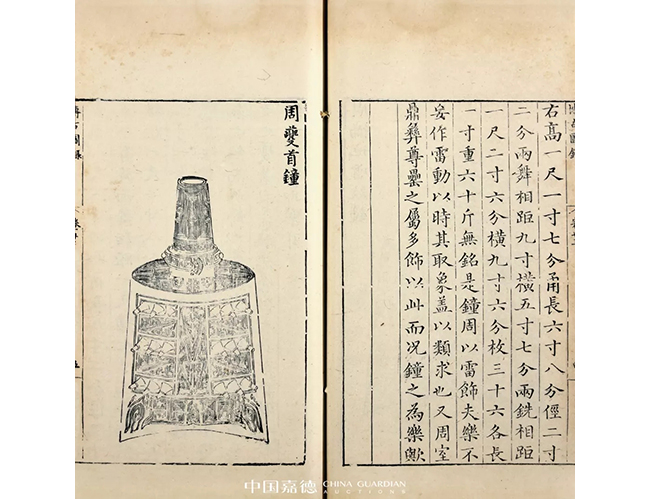 右高一尺一寸七分甬長六寸八分徑二寸
二分兩舞相距九寸橫五寸七分兩銑相距
一尺二寸六分橫九寸六分枚三十六各長
一寸重六十斤無銘是鐘周以雷飾夫樂不
妄作雷動以時其取象蓋以類求也又周室
鼎彝尊罍之屬多飾以此而况鐘之為樂歟
周夔首鐘
博古圖録
中国嘉德 CHINA GUARDIAN
AUCTIONS